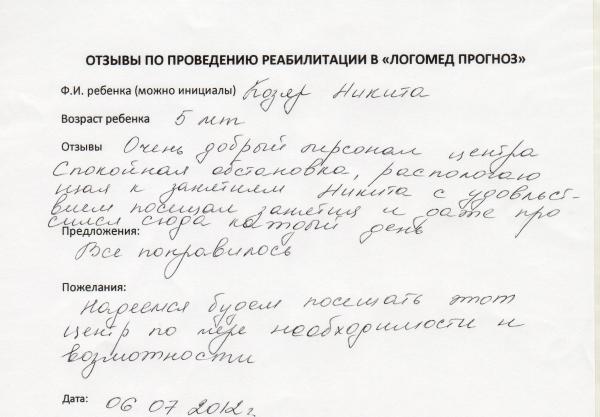 ОТЗЫВЫ ПО ПРОВЕДЕНИЮ РЕАБИЛИТАЦИИ В «ЛОГОМЕД ПРОГНОЗ»
Ф.И. ребенка (можно инициалы) Козяр Никита
Возраст ребенка 5 лет
Отзывы Очень добрый персонал центра
Спокойная обстановка, распологаю
щая к занятиям Никита с удовольст-
вием посещал занятия и даже про
сился сюда каждый день
Предложения:
Все понравилось
Пожелания:
Надеемся будем посещать этот
центр по мере необходимости и
возможности
Дата: 06 07 2012г.